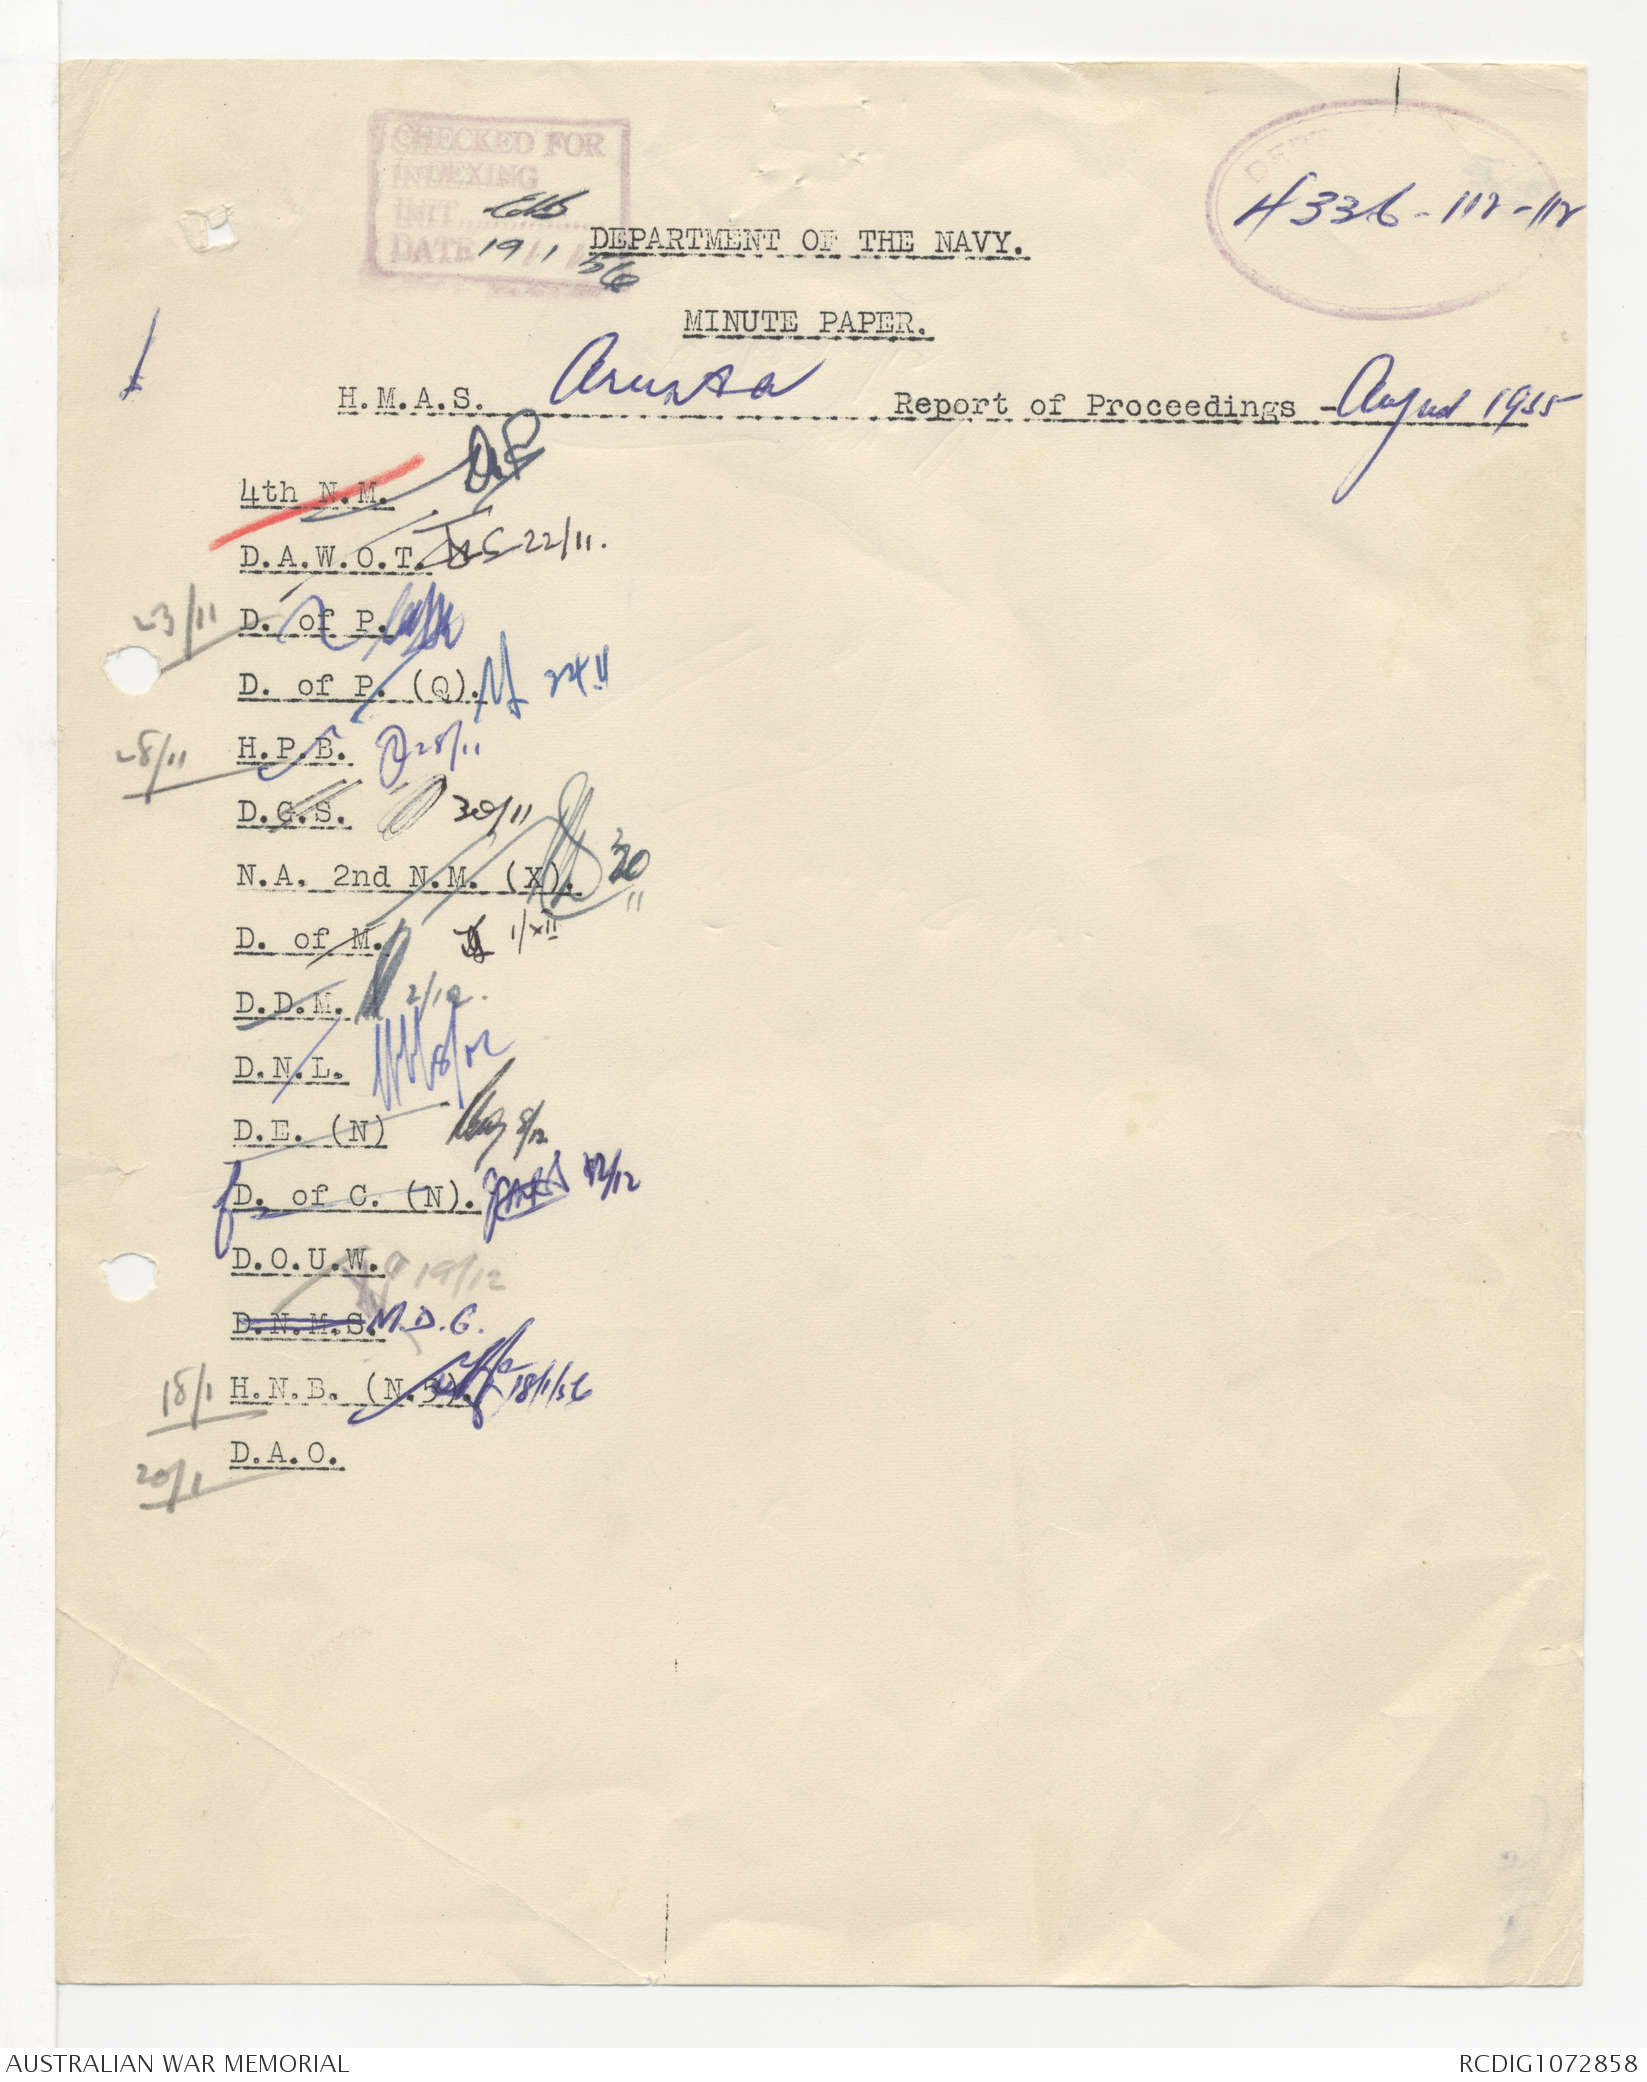 CHECKED FOR
INDEXING
INIT
DATE 19/1/56
4336-112-112
DEPARTMENT OF THE NAVY.
MINUTE PAPER.
H.M.A.S. Arunta Report of Proceedings - August 1955
4th N.M.
D.A.W.O.T. 22/11.
23/11 D. of P.
D. of P. (Q). 24.11
28/11 H.P.B. 28/11
D.G.S. 30/11
N.A. 2nd N.M. (X). 30/11
D. of M. 1/XII
D.D.M. 2/12.
D.N.L. 8/12
D.E. (N) 8/12
D. of C. (N). 12/12
D.O.U.W. 19/12
D.N.M.S. M.D.G.
18/1 H.N.B. (N.5). 18/1/56
20/1 D.A.O.
AUSTRALIAN WAR MEMORIAL
RCDIG1072858